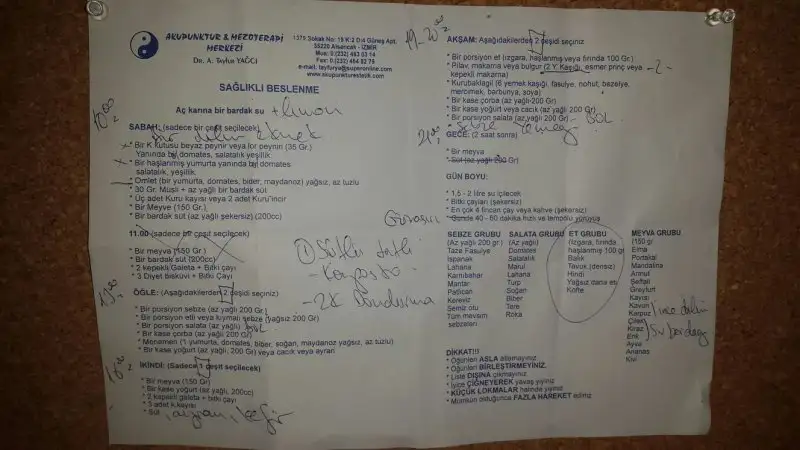 AKUPUNKTUR & MEZOTERAPİ
MERKEZİ
Dr. A. Tayfun YAĞCI
1379 Sokak No: 19 K:2 D:4 Güneş Apt.
35220 Alsancak - İZMİR
www.akupunkturestetik.com
SAĞLIKLI BESLENME
Aç karına bir bardak su + limon
10.00
SABAH: (sadece bir çeşit seçilecek)
Bir dilim ekmek
* Bir K kutusu beyaz peynir veya lor peyniri (35 Gr.)
Yanında domates, salatalık yeşillik
* Bir haşlanmış yumurta yanında domates
salatalık, yeşillik
* Omlet (bir yumurta, domates, biber, maydanoz) yağsız, az tuzlu
* 30 Gr. Müsli + az yağlı bir bardak süt
* Üç adet Kuru kayısı veya 2 adet Kuru incir
* Bir Meyve (150 Gr.)
* Bir bardak süt (az yağlı şekersiz) (200cc)
11.00 (sadece bir çeşit seçilecek)
* Bir meyva (150 Gr.)
* Bir bardak süt (200cc)
* 2 kepekli Galeta + Bitki Çayı
* 3 Diyet Bisküvi + Bitki Çayı
ÖĞLE: (Aşağıdakilerden 2 çeşidi seçiniz)
* Bir porsiyon sebze (az yağlı 200 Gr.)
* Bir porsiyon etli veya kıymalı sebze (yağsız 200 Gr)
* Bir porsiyon salata (az yağlı) BOL
* Bir kase çorba (az yağlı, 200 Gr)
* Menemen (1 yumurta, domates, biber, soğan, maydanoz yağsız, az tuzlu)
* Bir kase yoğurt (az yağlı, 200 Gr) veya cacık veya ayran
İKİNDİ: (Sadece 1 çeşit seçilecek)
* Bir meyva (150 Gr)
* Bir kase yoğurt (az yağlı, 200cc)
* 2 kepekli galeta + bitki çayı
* 3 adet k.kayısı
* Süt, ayran, kefir
19-20.00
AKŞAM: Aşağıdakilerden 2 çeşidi seçiniz
* Bir porsiyon et (ızgara, haşlanmış veya fırında 100 Gr.)
* Pilav, makarna veya bulgur (2 Y.Kaşığı, esmer pirinç veya -2-
kepekli makarna)
* Kurubaklagil (6 yemek kaşığı, fasulye, nohut, bezelye,
mercimek, barbunya, soya)
* Bir kase çorba (az yağlı-200 Gr)
* Bir kase yoğurt veya cacık (az yağlı, 200 Gr)
* Bir porsiyon salata (az yağlı-200 Gr) - BOL
- Sebze yemeği
GECE: (2 saat sonra)
* Bir meyva
* Süt (az yağlı 200 Gr)
GÜN BOYU:
* 1,5 - 2 litre su içilecek
* Bitki çayları (şekersiz)
* En çok 4 fincan çay veya kahve (şekersiz)
* Günde 40 - 60 dakika hızlı ve tempolu yürüyüş
① Sütlü tatlı
- Kazandibi
- 2K Dondurma
SEBZE GRUBU
(Az yağlı 200 gr)
Taze Fasulye
Ispanak
Lahana
Karnıbahar
Mantar
Patlıcan
Kereviz
Semiz otu
Tüm mevsim
sebzeleri
SALATA GRUBU
(Az yağlı)
Domates
Salatalık
Marul
Lahana
Turp
Soğan
Biber
Tere
Roka
ET GRUBU
(Izgara, fırında
haşlanmış 100 gr)
Balık
Tavuk (derisiz)
Hindi
Yağsız dana eti
Köfte
MEYVA GRUBU
(150 gr)
Elma
Portakal
Mandalina
Armut
Şeftali
Greyfurt
Kayısı
Kavun
Karpuz
Çilek
Kiraz
Erik
Ayva
Ananas
Kivi
ince dilim
Su bardağı
DİKKAT!!!
* Öğünleri ASLA atlamayınız
* Öğünleri BİRLEŞTİRMEYİNİZ.
* Liste DIŞINA çıkmayınız
* İyice ÇİĞNEYEREK yavaş yiyiniz
* KÜÇÜK LOKMALAR halinde yiyiniz
* Mümkün olduğunca FAZLA HAREKET ediniz